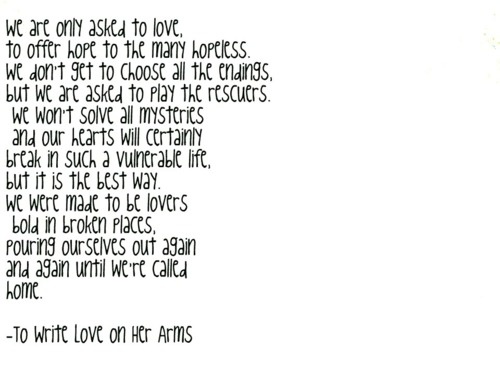 we are only asked to love,
to offer hope to the many hopeless.
we don't get to choose all the endings,
but we are asked to play the rescuers.
we won't solve all mysteries
and our hearts will certainly
break in such a vulnerable life,
but it is the best way.
we were made to be lovers
bold in broken places,
pouring ourselves out again
and again until we're called
home.
-To Write Love on Her Arms